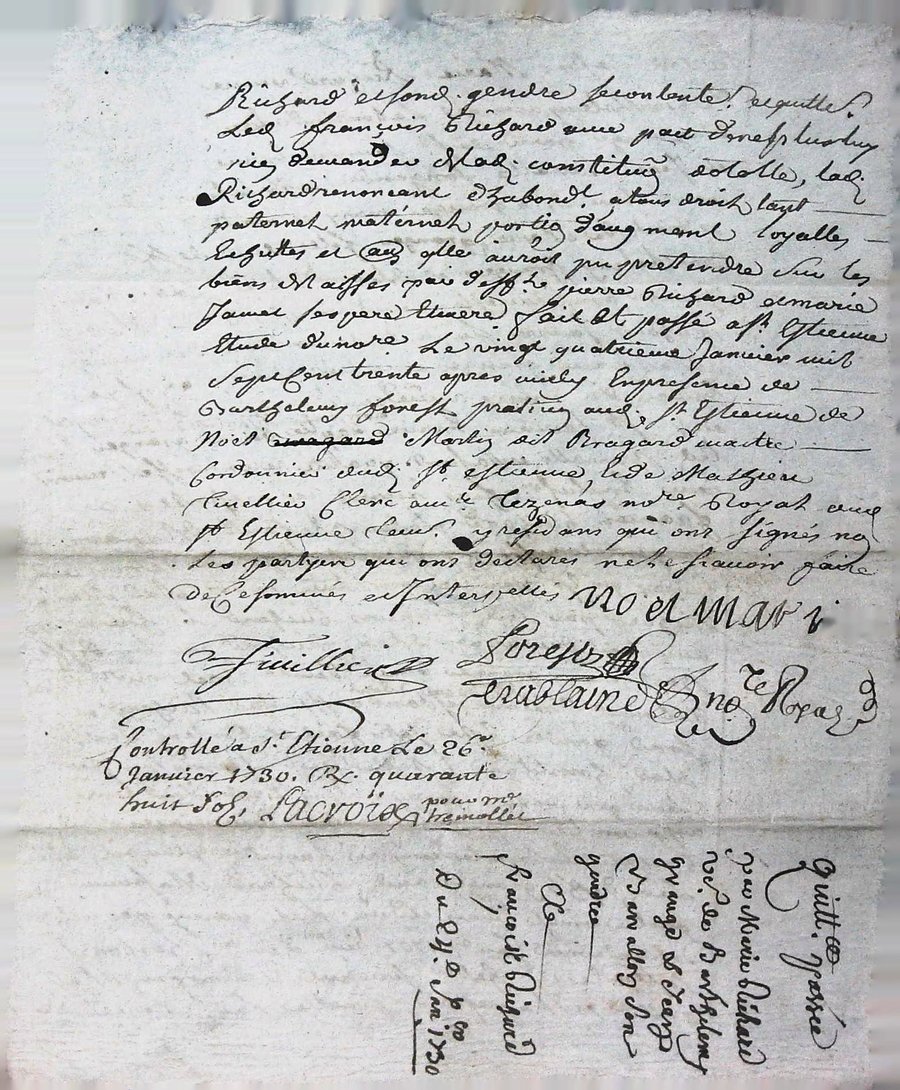 Richard et sond. gendre se contente, et quitte
Led. françois Richard avec pact de ne plus luy
rien demander Mad. constitution dotalle, lad.
Richard renonceant d'habond.t a tous droits tant
paternel maternel portion d'augment loyalles
Echuttes et au qlle auroit pu pretendre sur les
biens delaissés par deff.ts pierre Richard et marie
Jamet ses pere et mere fait et passé a St. Estienne
Etude du nore. Le vingt quatrieme Janvier mil
sept Cent trente apres midy En presence de
Barthelemy forest praticien aud. St. Estienne de
Noël Martin dit Bragard maitre
Cordonnier aud. St. estienne, et de Mathieu
Clerc au no.re Royal aud.
St. Estienne y residans qui ont signés non
Les partyes qui ont declares ne le scavoir faire
De Ce sommés et Interpellés noel mari
forest
no.re Royal
Controllé a St. Etienne Le 26e.
Janvier 1730. Rx. quarante
huit sols Lacroix pour mr
tremollet
Quitt.ce passée
par Marie Richard
ve. de Barthelemy
grange et Jean
son
gendre
De
françois Richard
Du 24e Janv. 1730